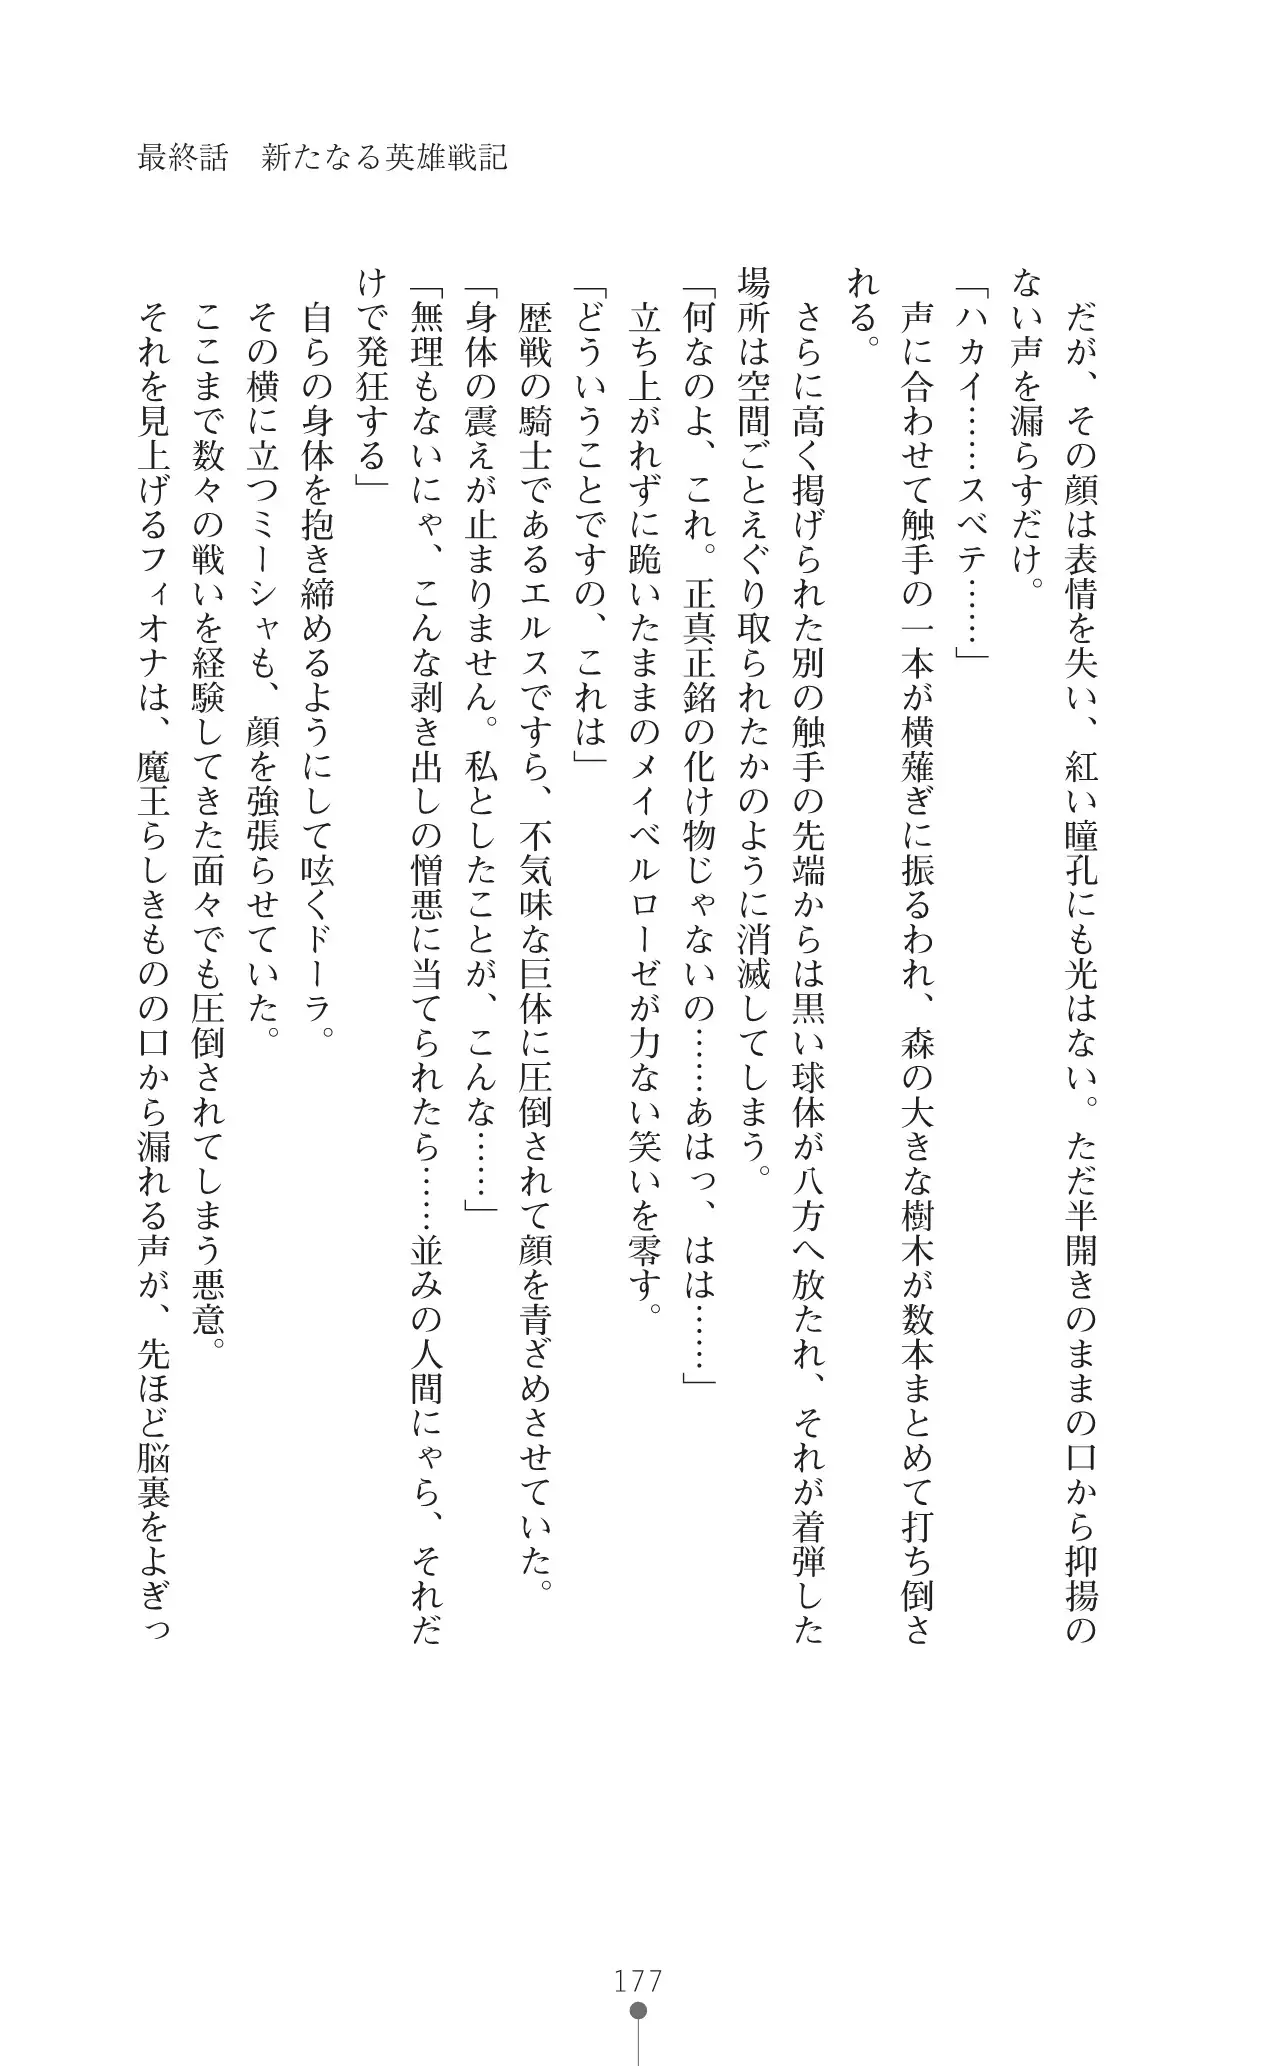 最終話　新たなる英雄戦記
　だが、その顔は表情を失い、紅い瞳孔にも光はない。ただ半開きのままの口から抑揚の
ない声を漏らすだけ。
「ハカイ……スベテ……」
　声に合わせて触手の一本が横薙ぎに振るわれ、森の大きな樹木が数本まとめて打ち倒さ
れる。
　さらに高く掲げられた別の触手の先端からは黒い球体が八方へ放たれ、それが着弾した
場所は空間ごとえぐり取られたかのように消滅してしまう。
「何なのよ、これ。正真正銘の化け物じゃないの……あはっ、はは……」
　立ち上がれずに跪いたままのメイベルローゼが力ない笑いを零す。
「どういうことですの、これは」
　歴戦の騎士であるエルスですら、不気味な巨体に圧倒されて顔を青ざめさせていた。
「身体の震えが止まりません。私としたことが、こんな……」
「無理もないにゃ、こんな剥き出しの憎悪に当てられたら……並みの人間にゃら、それだ
けで発狂する」
　自らの身体を抱き締めるようにして呟くドーラ。
　その横に立つミーシャも、顔を強張らせていた。
　ここまで数々の戦いを経験してきた面々でも圧倒されてしまう悪意。
　それを見上げるフィオナは、魔王らしきものの口から漏れる声が、先ほど脳裏をよぎっ
177